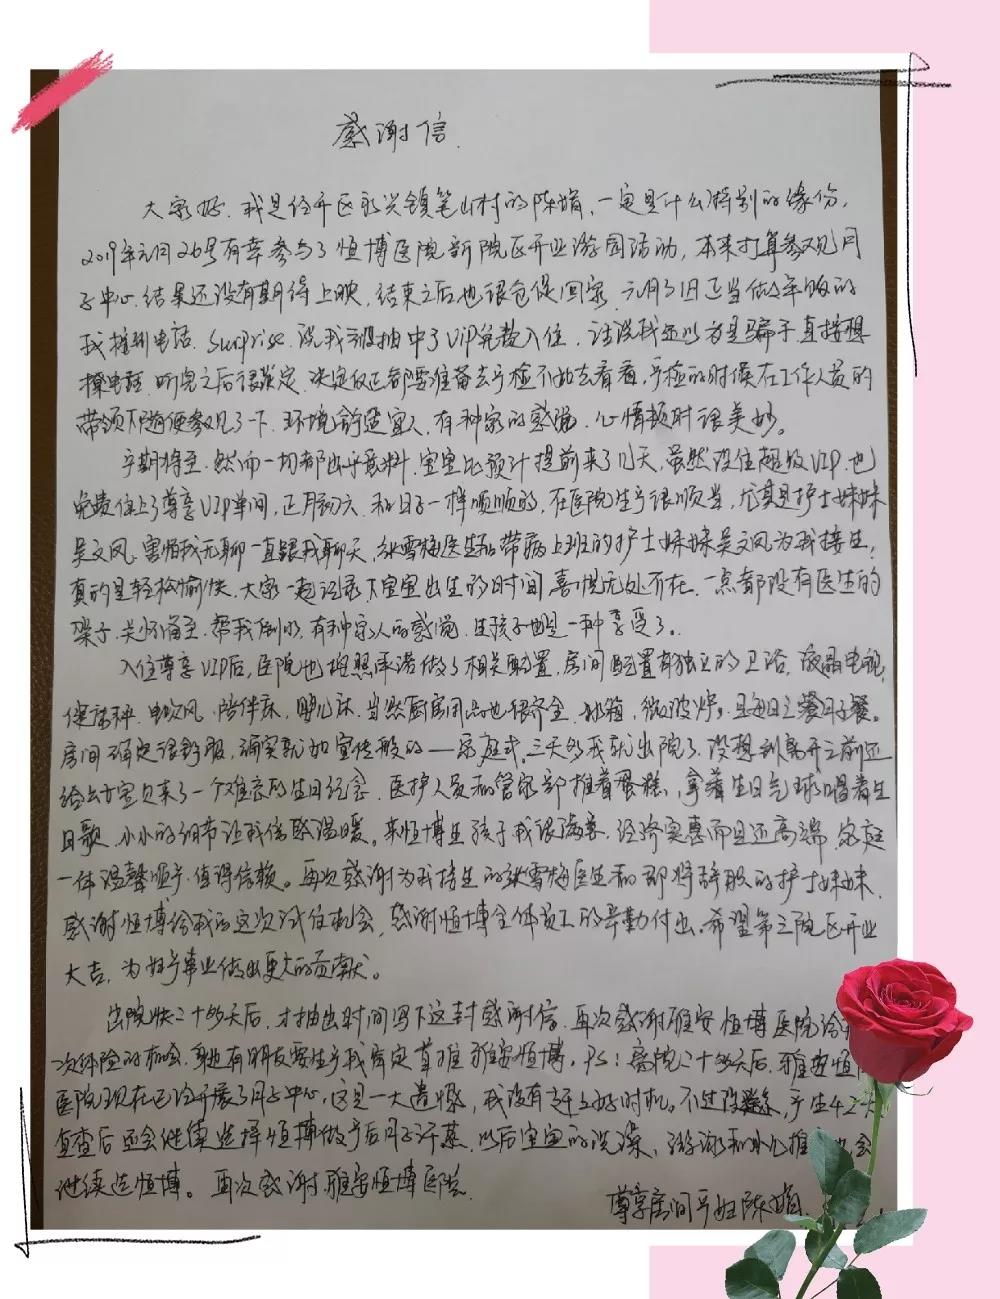 感谢信.
大家好.我是经开区永兴镇笔山村的陈娟,一定是什么特别的缘份,
2019年元月26号有幸参与了恒博医院新院区开业游园活动,本来打算参观月
子中心.结果还没有期待上映,结束之后也很仓促回家.元月31日正当做年饭的
我接到电话.Surprise.说我被抽中了VIP免费入住,话说我还以为是骗子直接想
撂电话.听完之后很淡定.决定反正都要准备去产检不如去看看,产检的时候在工作人员的
带领下随便参观了一下.环境舒适宜人.有种家的感觉.心情顿时很美妙。
产期将至.然而一切都出乎意料.宝宝比预计提前来了几天,虽然没住超级VIP.也
免费住上了尊享VIP单间,正月初六.和日子一样顺顺的,在医院生产很顺当,尤其是护士妹妹
吴文凤.害怕我无聊一直跟我聊天,张雪梅医生和带病上班的护士妹妹吴文凤为我接生,
真的是轻松愉快.大家一起记录下宝宝出生的时间喜悦无处不在.一点都没有医生的
架子.关怀备至.帮我倒水.有种家人的感觉.生孩子也是一种享受了。
入住尊享VIP后,医院也按照承诺做了相关配置,房间配置有独立的卫浴,液晶电视,
健康秤.电吹风.陪伴床,婴儿床.当然厨房用品也很齐全.冰箱,微波炉。且每日三餐月子餐。
房间确定很舒服,确实就如宣传般的——家庭式.三天多我就出院了.没想到离开之前还
给去方宝贝来了一个难忘的生日纪念.医护人员和管家都推着蛋糕,拿着生日气球唱着生
日歌.小小的细节让我倍感温暖。来恒博生孩子我很满意.经济实惠而且还高端.家庭
一体温馨顺产.值得信赖。再次感谢为我接生的张雪梅医生和即将辞职的护士妹妹.
感谢恒博给我的这次试住机会,感谢恒博全体员工的辛勤付出.希望第三院区开业
大吉,为妇产事业做出更大的贡献。
出院快二十多天后,才抽出时间写下这封感谢信.再次感谢雅安恒博医院给
次体验的机会.身边有朋友要生产我肯定首推雅安恒博。PS:离院二十多天后.雅安恒
医院现在已经开展了月子中心,这是一大遗憾,我没有赶上好时机。不过没关系,产生42天
复查后还会继续选择恒博做产后月子汗蒸.以后宝宝的洗澡、游泳和小儿推 也会
继续选恒博。再次感谢雅安恒博医院.
尊享房间产妇陈娟.